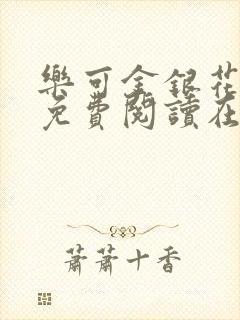 樂可金銀花
免費閱讀在
蕭蕭十香